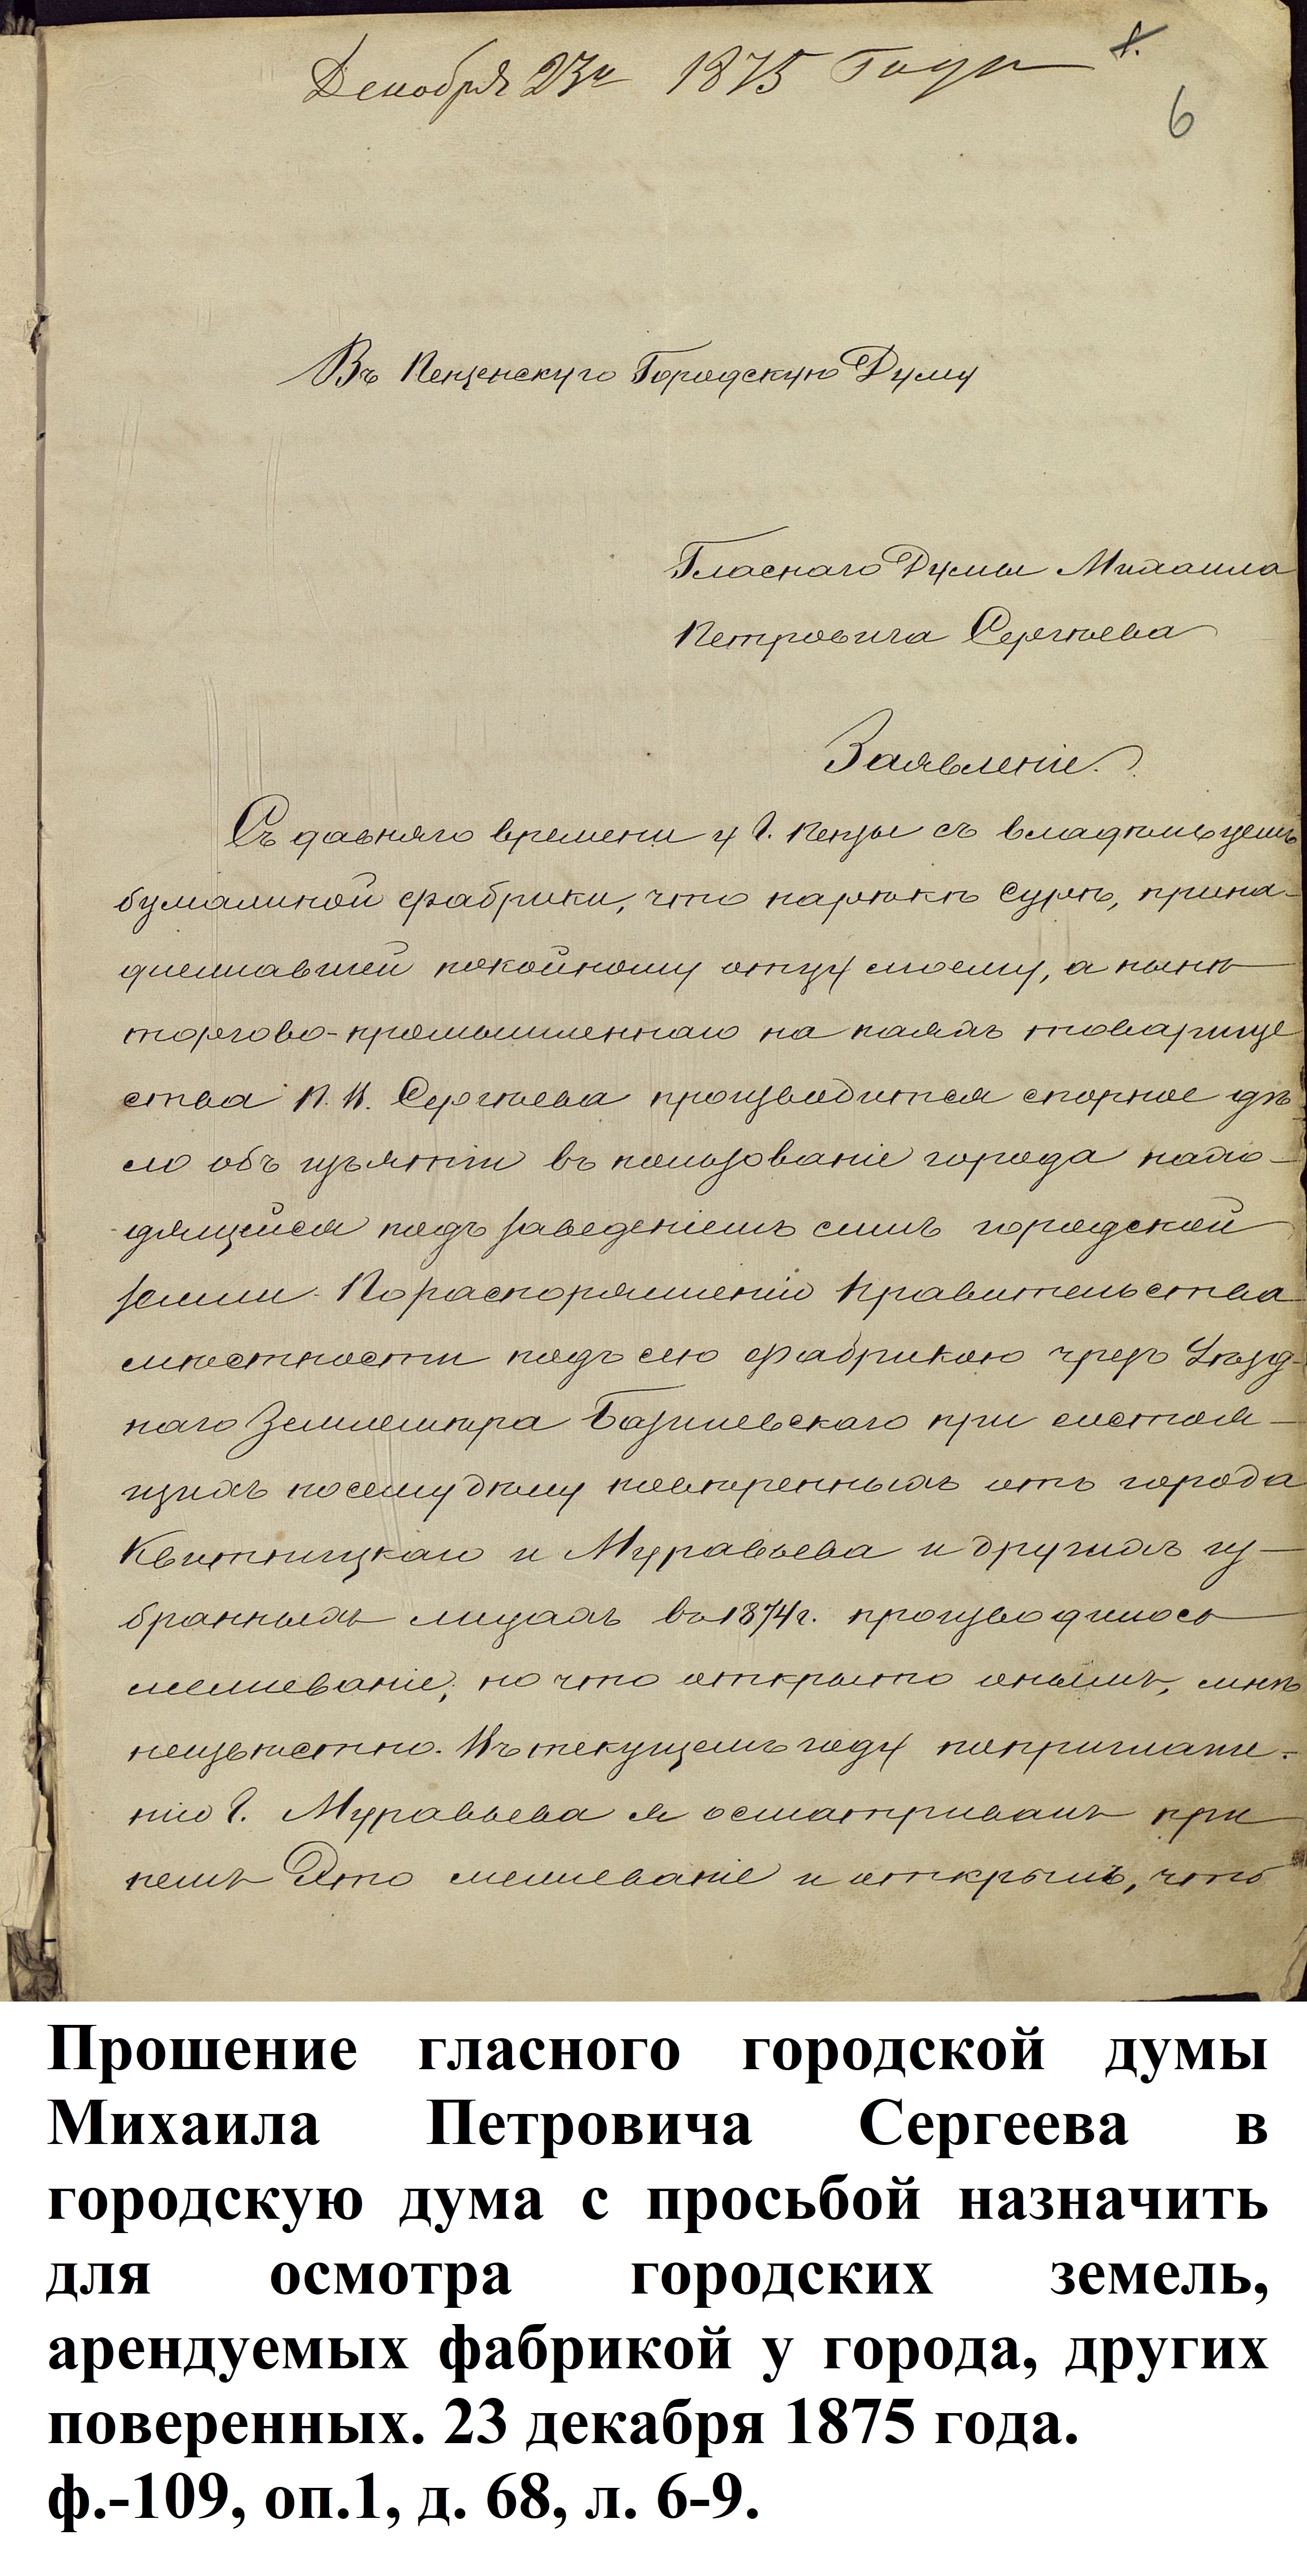 Декабря 23го 1875 Года
6
Въ Пензенскую Городскую Думу
Гласнаго Думы Михаила
Петровича Сергѣева
Заявленіе.
Съ давняго времени у г. Пензы съ владѣльцемъ
бумажной фабрики, что нарѣкѣ Сурѣ, прина-
длежавшей покойному отцу моему, а нынѣ
торгово-промышленнаго на паяхъ товарище
ства П. И. Сергѣева производится спорное дѣ
ло объ изъятіи въ пользованіе города нахо-
дящейся подъ заведеніемъ симъ городской
земли. По распоряженію Правительства
мѣстности подъ сею фабрикою чрезъ Уѣзд-
наго Землемѣра Базилевскаго при состоя-
щихъ посему дѣлу повѣренныхъ отъ города
Квитницкаго и Муравьева и другихъ из-
бранныхъ лицахъ въ 1874 г. производилось
межеваніе, но что открыто онымъ, мнѣ
неизвѣстно. Въ текущемъ году поприглаше-
нію г. Муравьева я осматривалъ при
немъ Это межеваніе и открылъ, что
Прошение гласного городской думы
Михаила Петровича Сергеева в
городскую дума с просьбой назначить
для осмотра городских земель,
арендуемых фабрикой у города, других
поверенных. 23 декабря 1875 года.
ф.-109, оп.1, д. 68, л. 6-9.